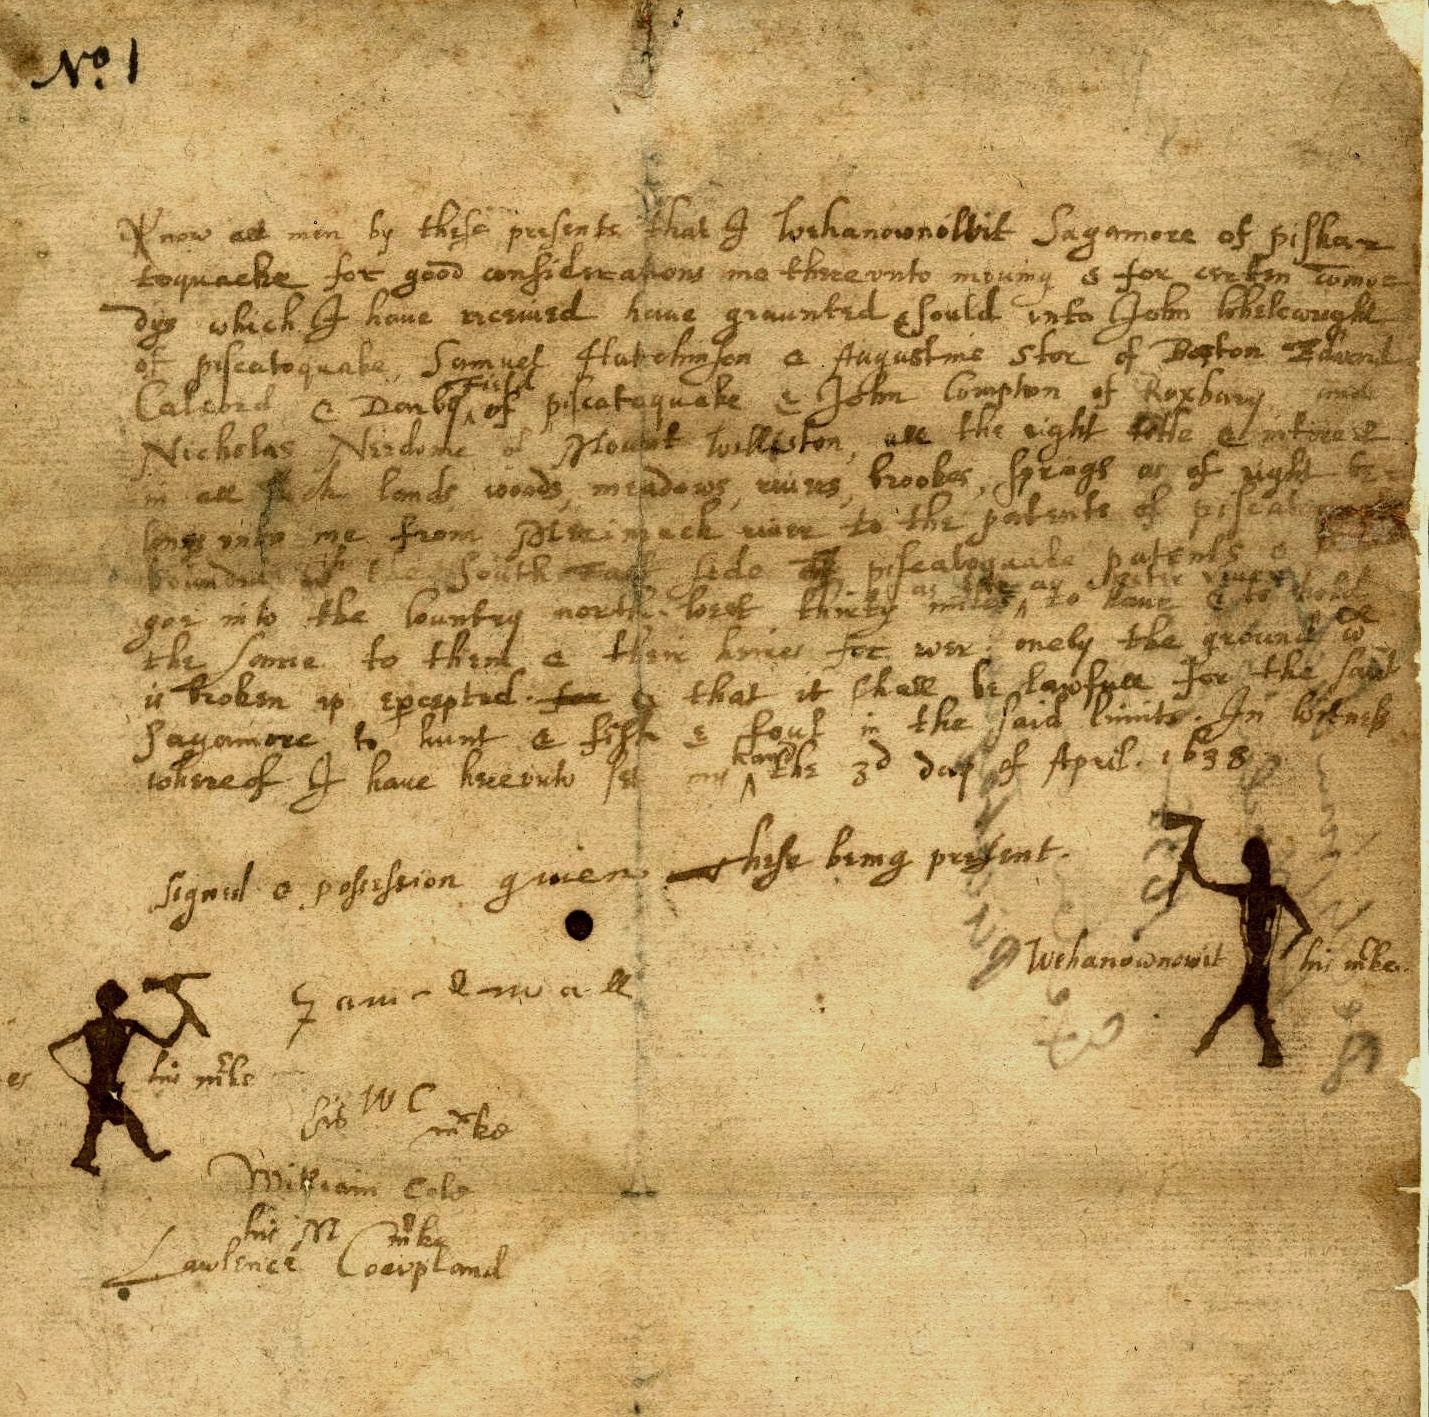 No. 1
Know all men by these presents that I Wehanownowit Sagamore of piskat
toquacke for good considerations me therevnto mouing & for certen comõ-
dys which I haue receiued haue graunted & sould vnto John Whelewright
of piscatoquake, Samuel Hutchinson & Augustine Stor of Boston Edward
Calcord & Darby Field of piscataquake & John Compton of Roxbury and
Nicholas Needome of Mount Walliston, all the right title & interest
in all such lands, woods, meadows, riuers, brookes, springs as of right be-
longs vnto me from Merimack riuer to the patents of piscatoquake
bounded wth the South East side of piscatoquake patents & so to
goe into the Country north West thirty miles as far as Oyster riuer to haue & to hold
the same to them & their heires for euer. onely the ground wch
is broken up excepted. for & that it shall be lawfull for the said
Sagamore to hunt & fish & foul in the said limits. In Witness
whereof I haue herevnto set my hand the 3d day of April. 1638
Signed & possession giuen these being present.
Wehanownowit his mke.
his mke
his W C mke
William Cole
his M mke
Lawlence Coevpland